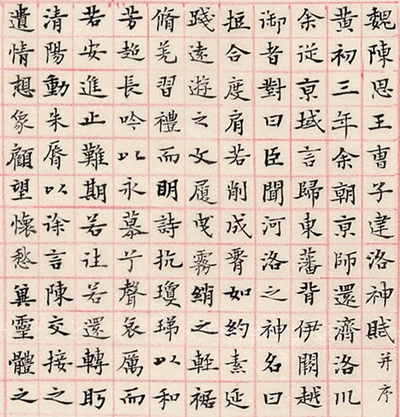 魏陳思王曹子建洛神賦并序
黄初三年余朝京師還濟洛川
余従京域言歸東藩背伊闕越
御者對曰臣聞河洛之神名曰
合度肩若削成如約素延
踐遠遊之文履曳霧綃之輕裾
脩羌習禮而明詩抗瓊珶以和
芳超長吟以永慕兮聲哀厲而
若安進止難期若往若還轉眄
清陽動朱脣以徐言陳交接之
遺情想象顧望懷愁冀靈體之